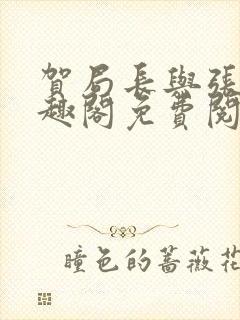 賀局長與張
趣閣免費閱
瞳色的薔薇花